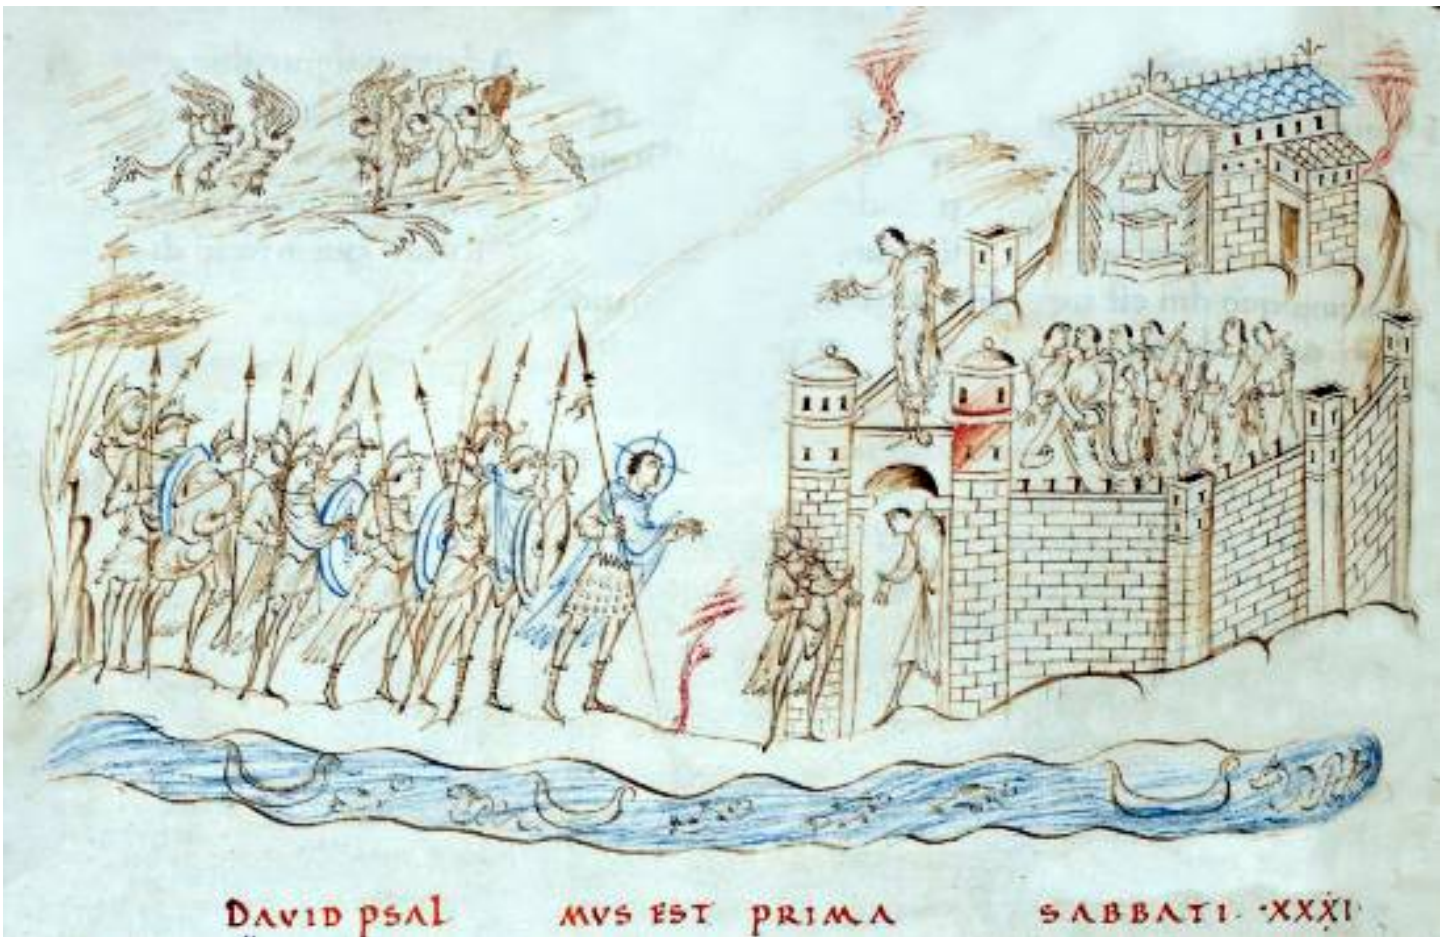 DAVID PSALMUS EST PRIMA SABBATI ·XXXI·